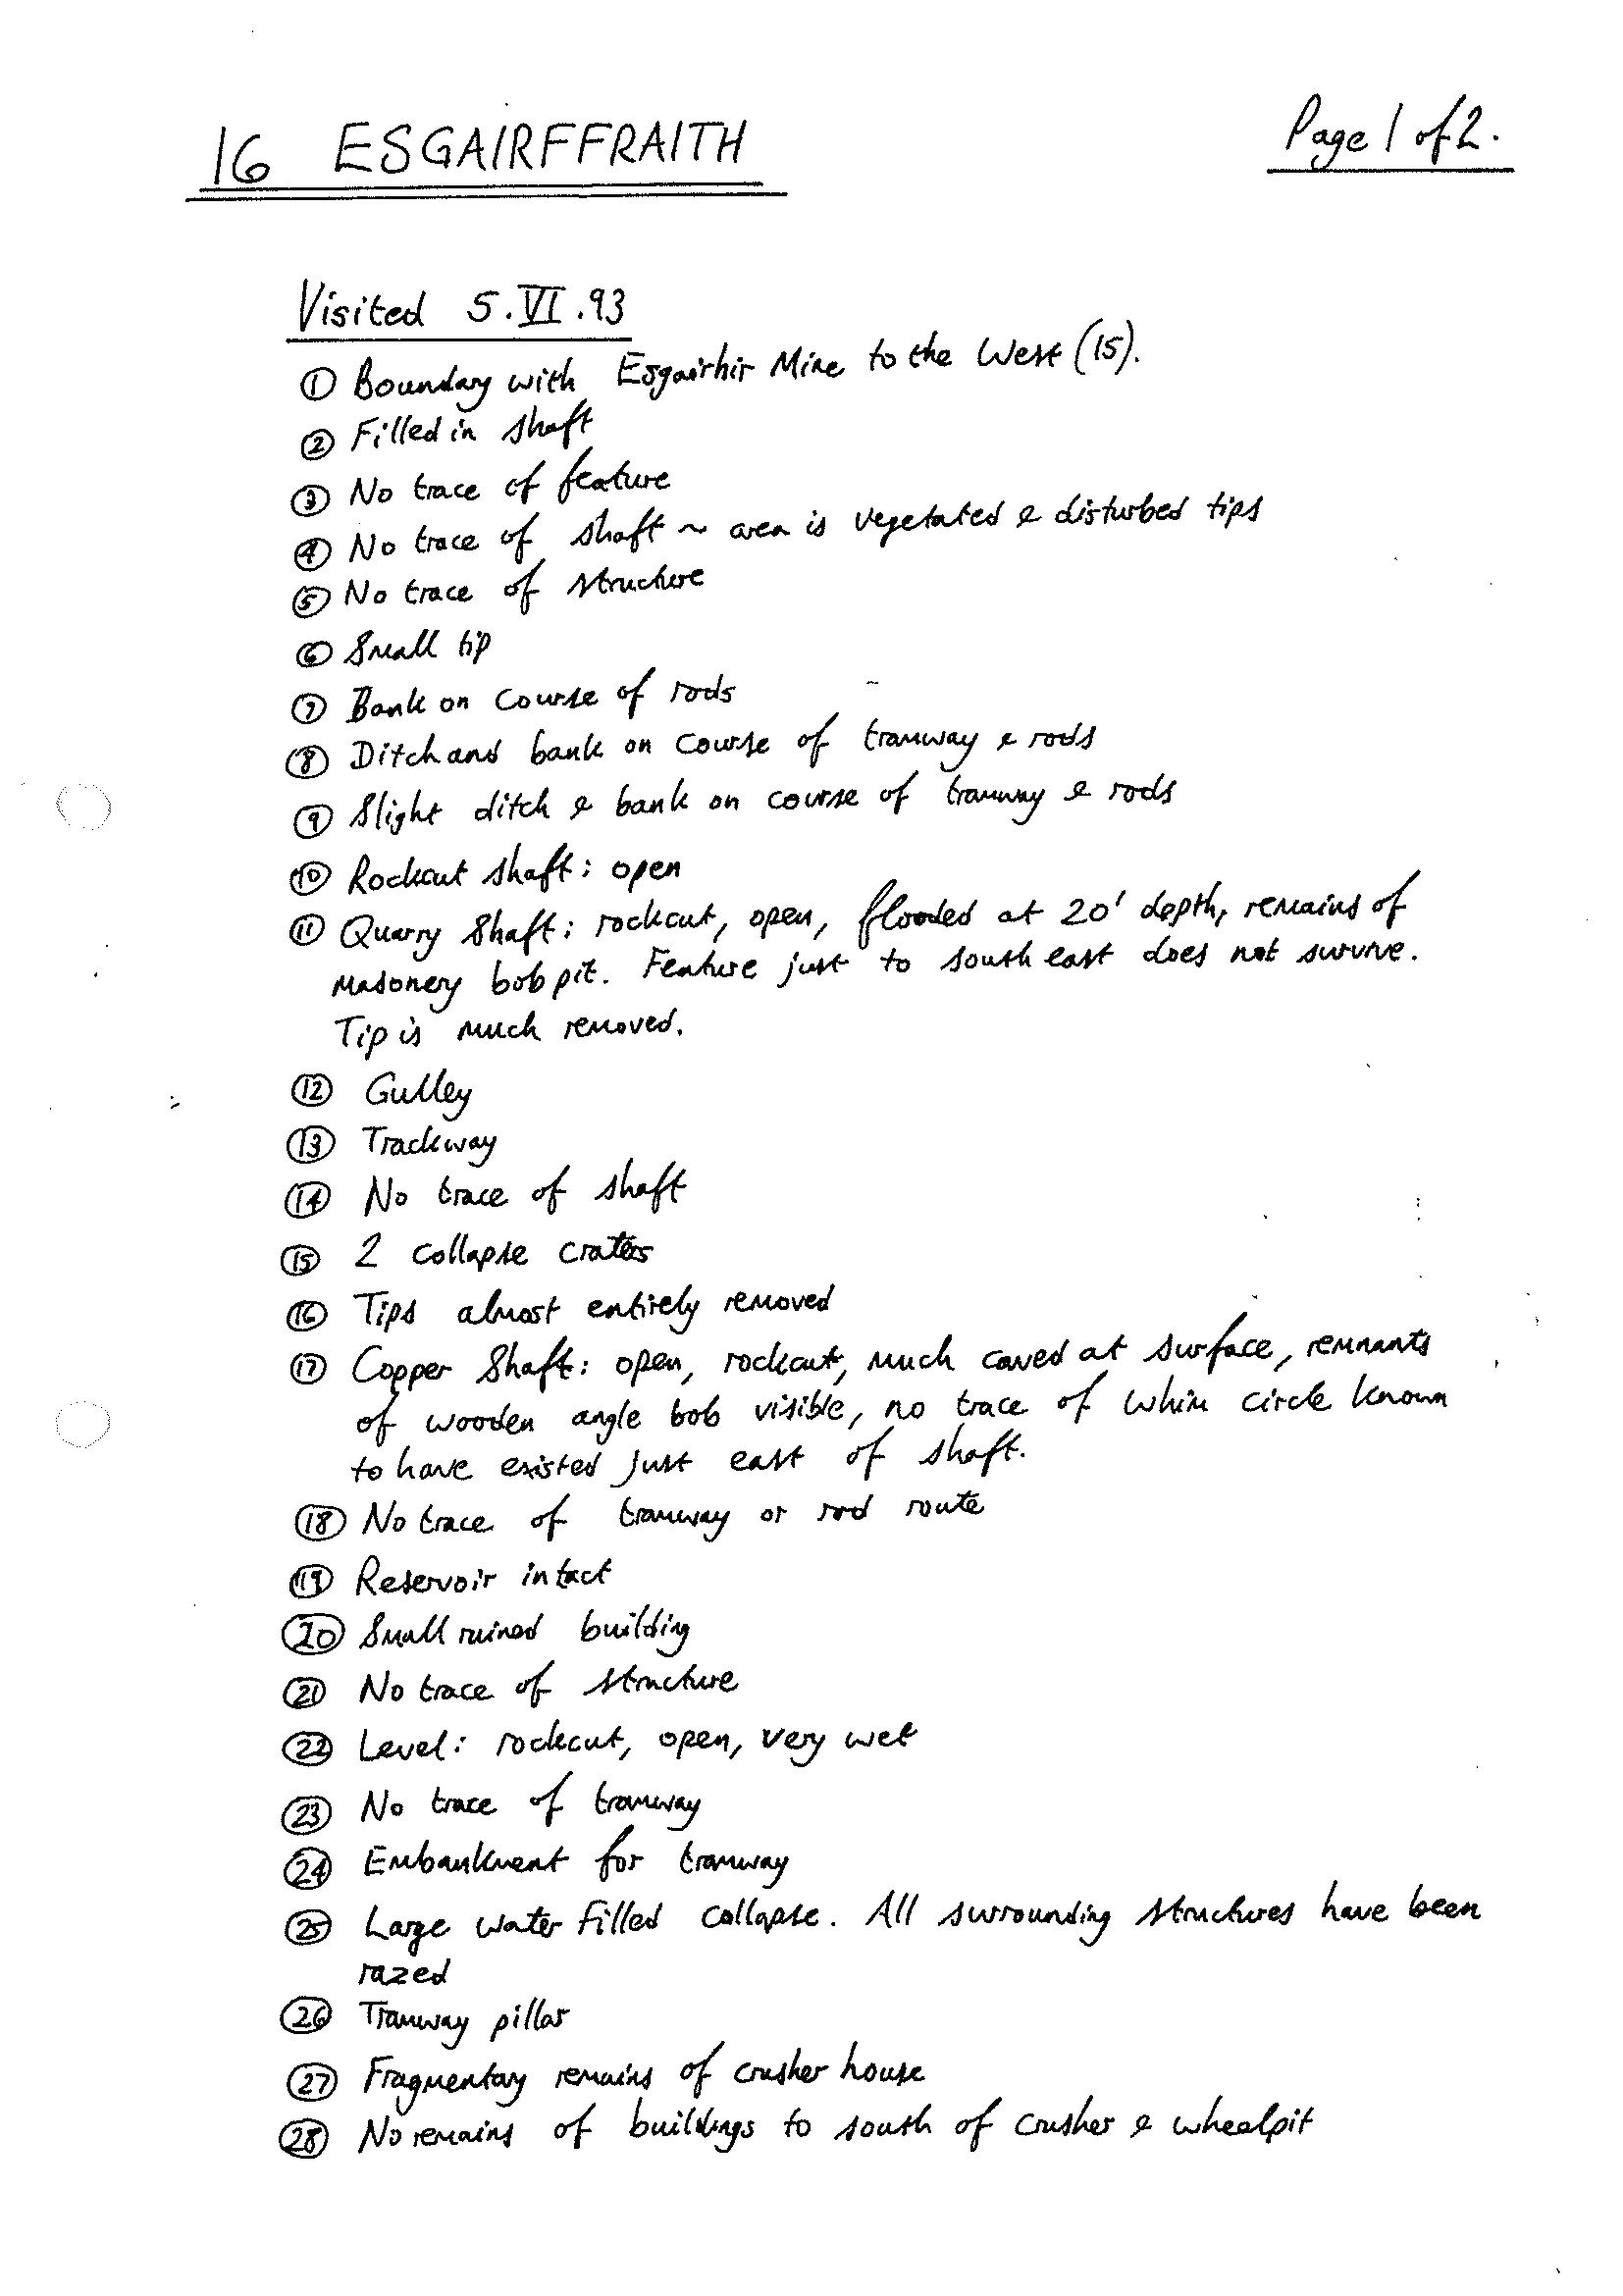 16 ESGAIRFFRAITH
Page 1 of 2.
Visited 5.VI.93
① Boundary with Esgairhir Mine to the West (15).
② Filled in shaft
③ No trace of feature
④ No trace of shaft ~ area is vegetated & disturbed tips
⑤ No trace of structure
⑥ Small tip
⑦ Bank on course of rods
⑧ Ditch and bank on course of tramway & rods
⑨ Slight ditch & bank on course of tramway & rods
⑩ Rockcut shaft: open
⑪ Quarry Shaft: rockcut, open, flooded at 20' depth, remains of
masonery bob pit. Feature just to south east does not survive.
Tip is much removed.
⑫ Gulley
⑬ Trackway
⑭ No trace of shaft
⑮ 2 collapse craters
⑯ Tips almost entirely removed
⑰ Copper Shaft: open, rockcut, much caved at surface, remnants
of wooden angle bob visible, no trace of whim circle known
to have existed just east of shaft.
⑱ No trace of tramway or rod route
⑲ Reservoir intact
⑳ Small ruined building
㉑ No trace of structure
㉒ Level: rockcut, open, very wet
㉓ No trace of tramway
㉔ Embankment for tramway
㉕ Large water filled collapse. All surrounding structures have been
razed
㉖ Tramway pillar
㉗ Fragmentary remains of crusher house
㉘ No remains of buildings to south of crusher & wheelpit